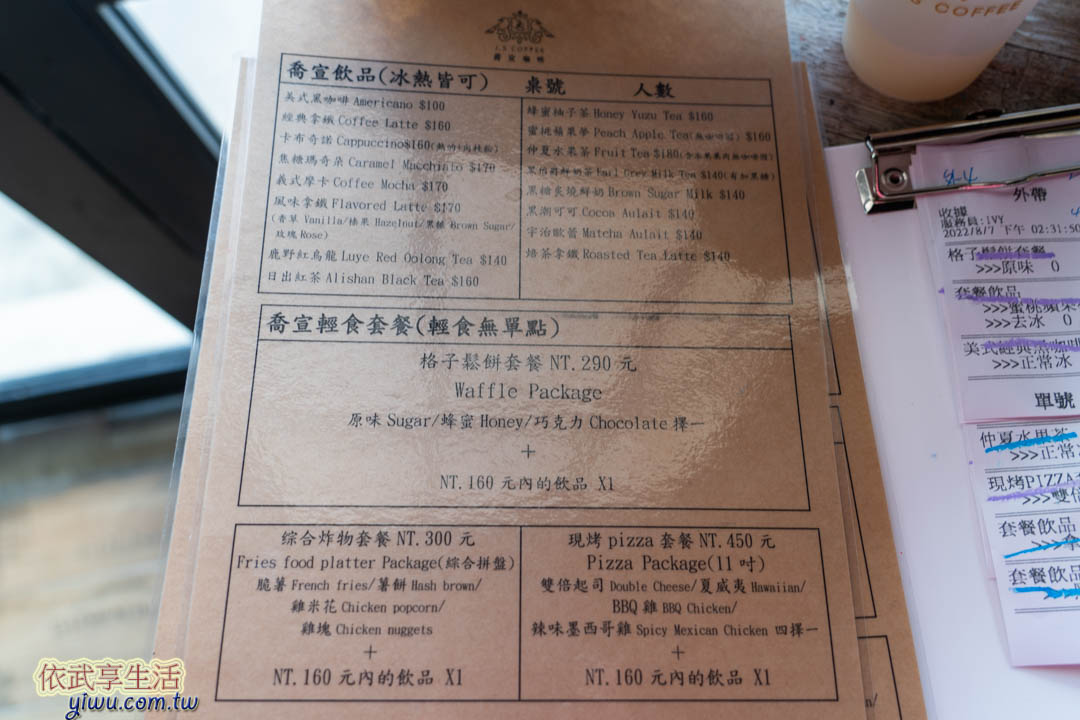 J.S COFFEE
喬宣咖啡
喬宣飲品(冰熱皆可) 桌號 人數
美式黑咖啡 Americano $100
經典拿鐵 Coffee Latte $160
卡布奇諾 Cappuccino$160(熱的+肉桂粉)
焦糖瑪奇朵 Caramel Macchiato $170
義式摩卡 Coffee Mocha $170
風味拿鐵 Flavored Latte $170
(香草 Vanilla/榛果 Hazelnut/黑糖 Brown Sugar/
玫瑰 Rose)
鹿野紅烏龍 Luye Red Oolong Tea $140
日出紅茶 Alishan Black Tea $160
蜂蜜柚子茶 Honey Yuzu Tea $160
蜜桃蘋果夢 Peach Apple Tea(無咖啡因) $160
仲夏水果茶 Fruit Tea $180(含水果果肉無咖啡因)
黑伯爵鮮奶茶 Earl Grey Milk Tea $140(有加黑糖)
黑糖炙燒鮮奶 Brown Sugar Milk $140
黑潮可可 Cocoa Aulait $140
宇治歐蕾 Matcha Aulait $140
焙茶拿鐵 Roasted Tea Latte $140
喬宣輕食套餐(輕食無單點)
格子鬆餅套餐 NT.290 元
Waffle Package
原味 Sugar/蜂蜜 Honey/巧克力 Chocolate 擇一
+
NT.160 元內的飲品 X1
综合炸物套餐 NT.300 元
Fries food platter Package(綜合拼盤)
脆薯 French fries/薯餅 Hash brown/
雞米花 Chicken popcorn/
雞塊 Chicken nuggets
+
NT.160 元內的飲品 X1
現烤 pizza 套餐 NT.450 元
Pizza Package(11 吋)
雙倍起司 Double Cheese/夏威夷 Hawaiian/
BBQ 雞 BBQ Chicken/
辣味墨西哥雞 Spicy Mexican Chicken 四擇一
+
NT.160 元內的飲品 X1
COFFEE
外帶
收據
服務員:IVY
2022/8/7 下午 02:31:50
格子鬆餅套餐
>>>原味 0
套餐飲品
>>>蜜桃蘋果
>>>去冰 0
美式經典黑咖啡
>>>正常冰
單號
仲夏水果茶
>>>正常
現烤PIZZA
>>>雙倍
套餐飲品
套餐飲品
依武享生活
yiwu.com.tw